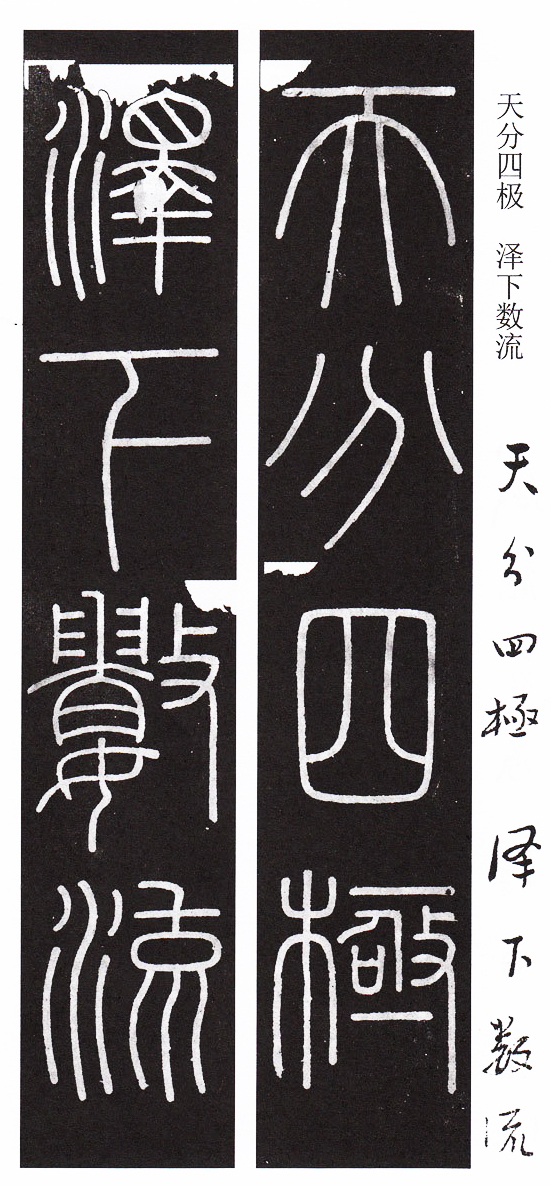 天分四极 泽下数流
天分四極 泽下数流
天分四極
澤下數流